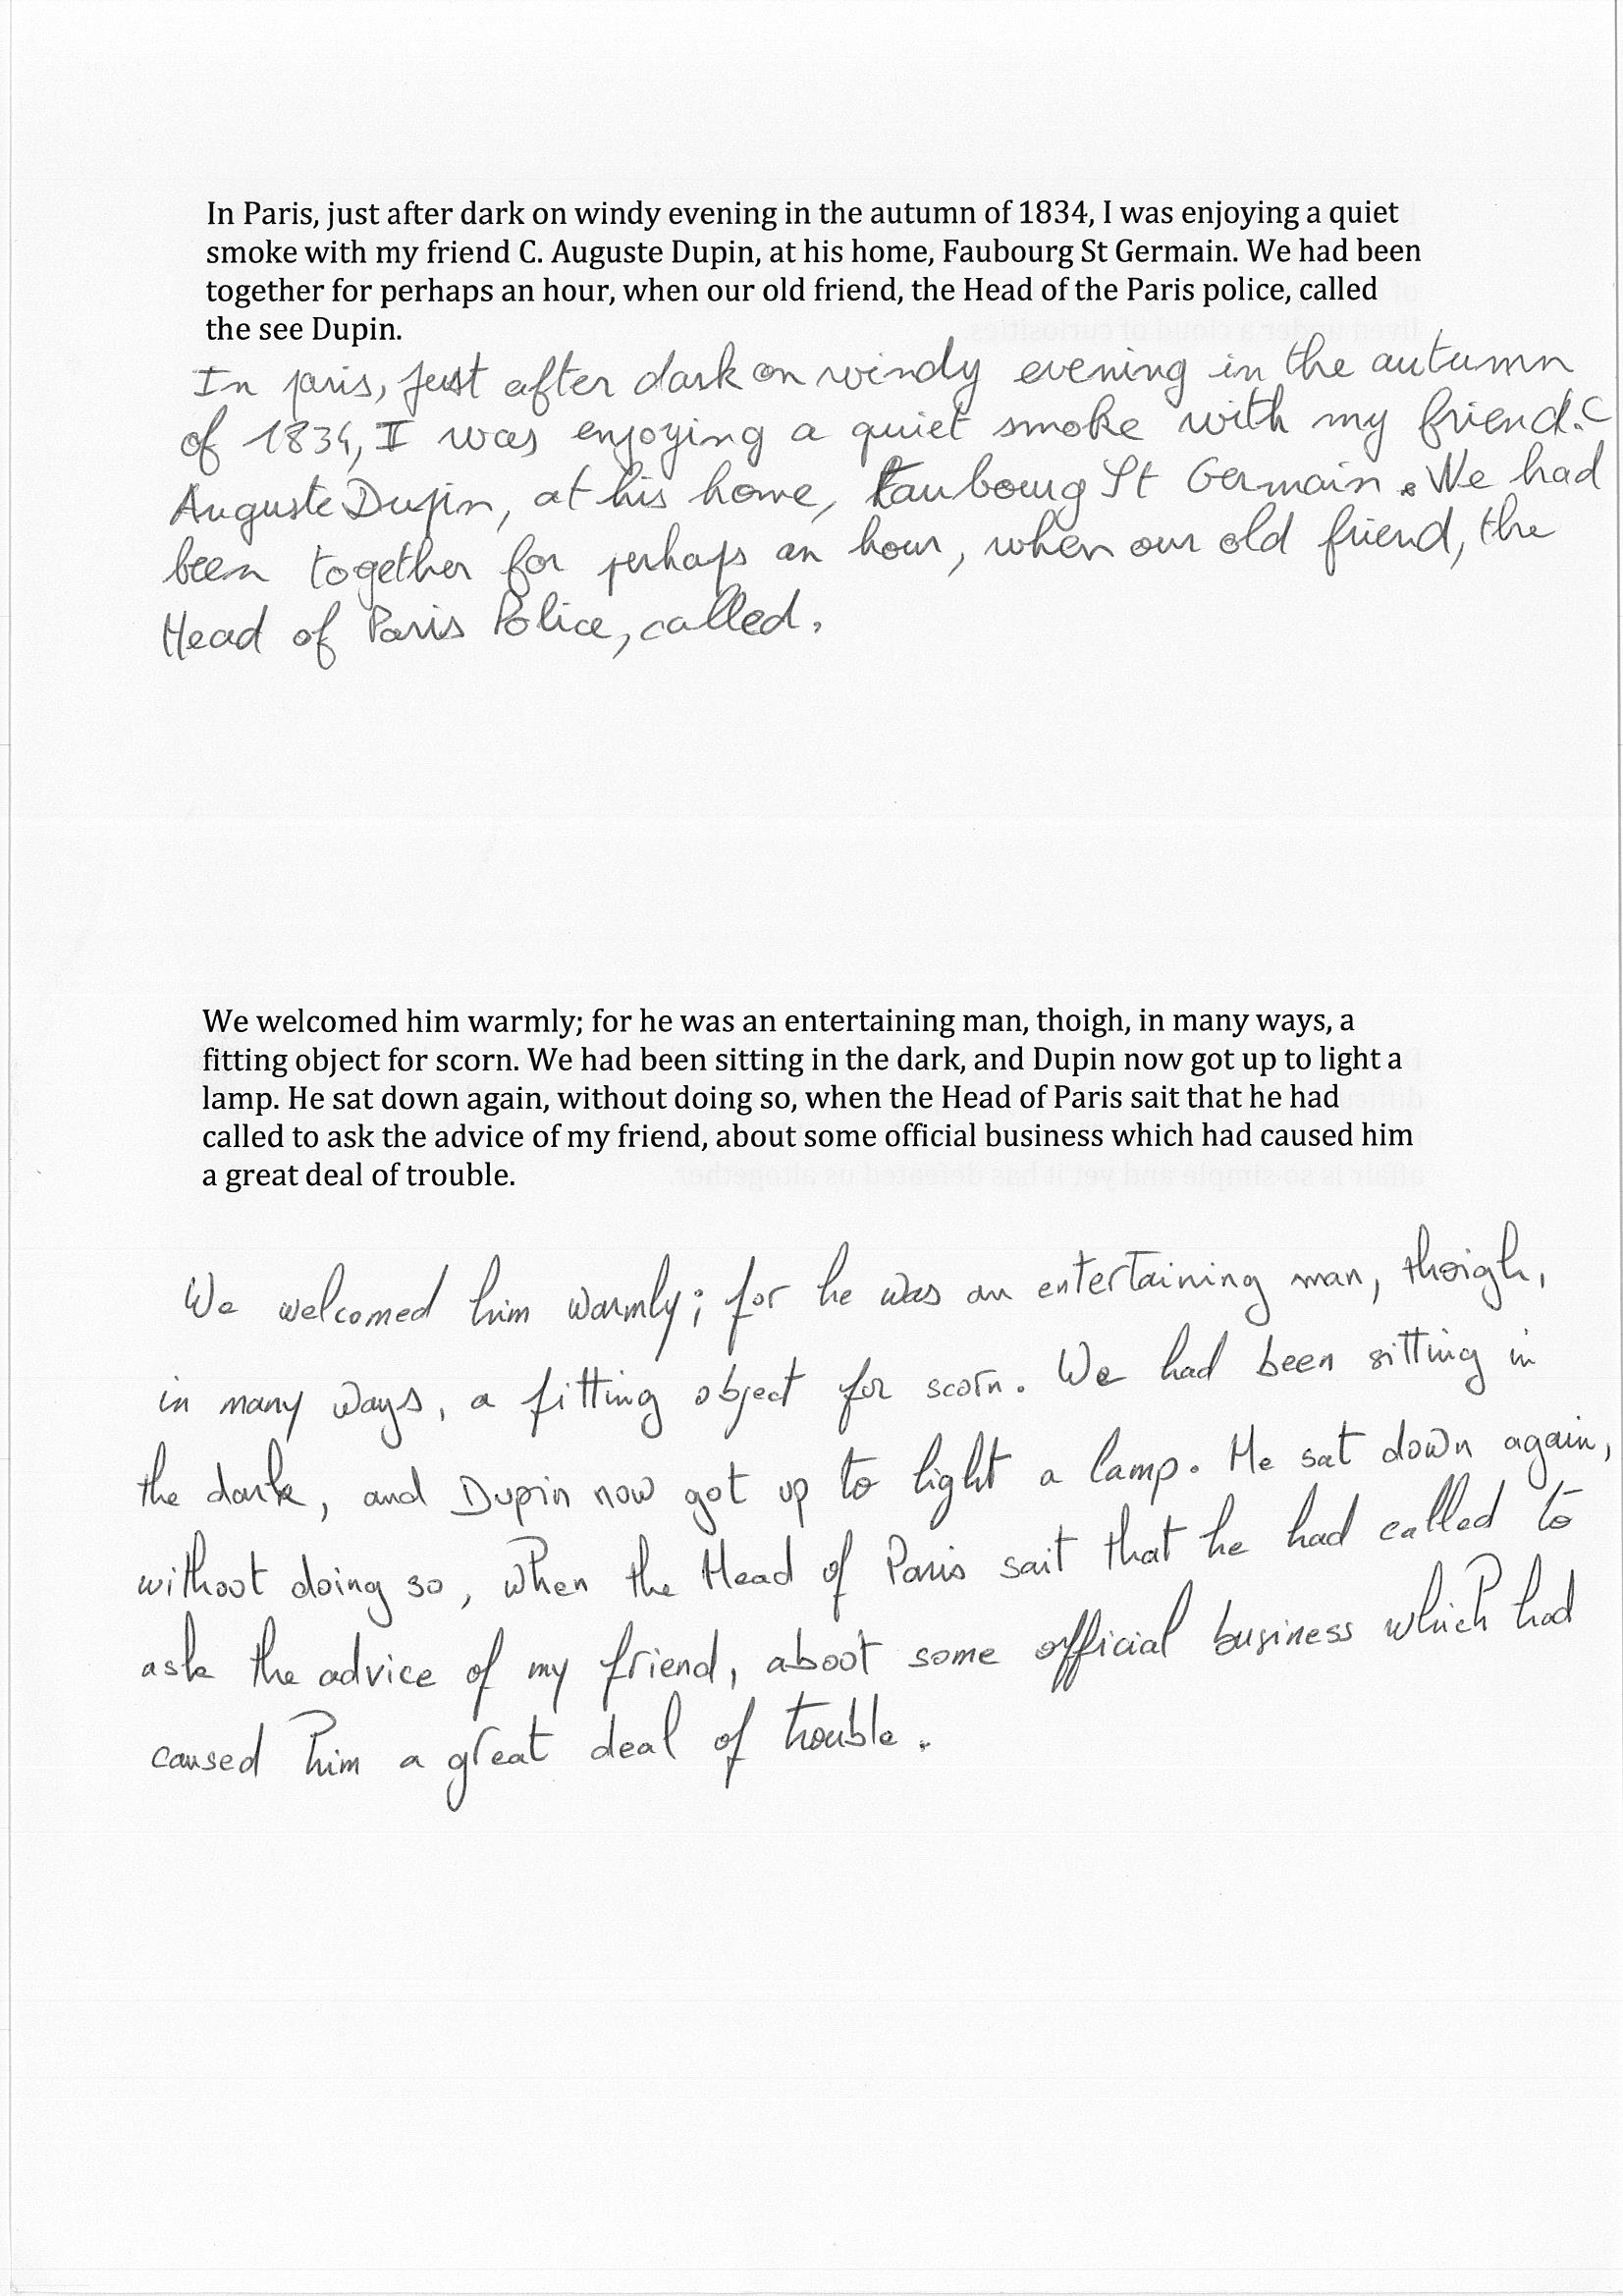 In Paris, just after dark on windy evening in the autumn of 1834, I was enjoying a quiet
smoke with my friend C. Auguste Dupin, at his home, Faubourg St Germain. We had been
together for perhaps an hour, when our old friend, the Head of the Paris police, called
the see Dupin.
In paris, just after dark on windy evening in the autumn
of 1834, I was enjoying a quiet smoke with my friend.C
Auguste Dupin, at his home, Faubourg St Germain. We had
been together for perhaps an hour, when our old friend, the
Head of Paris Police, called.
We welcomed him warmly; for he was an entertaining man, thoigh, in many ways, a
fitting object for scorn. We had been sitting in the dark, and Dupin now got up to light a
lamp. He sat down again, without doing so, when the Head of Paris sait that he had
called to ask the advice of my friend, about some official business which had caused him
a great deal of trouble.
We welcomed him warmly; for he was an entertaining man, thoigh,
in many ways, a fitting object for scorn. We had been sitting in
the dark, and Dupin now got up to light a lamp. He sat down again,
without doing so, when the Head of Paris sait that he had called to
ask the advice of my friend, about some official business which had
caused him a great deal of trouble.